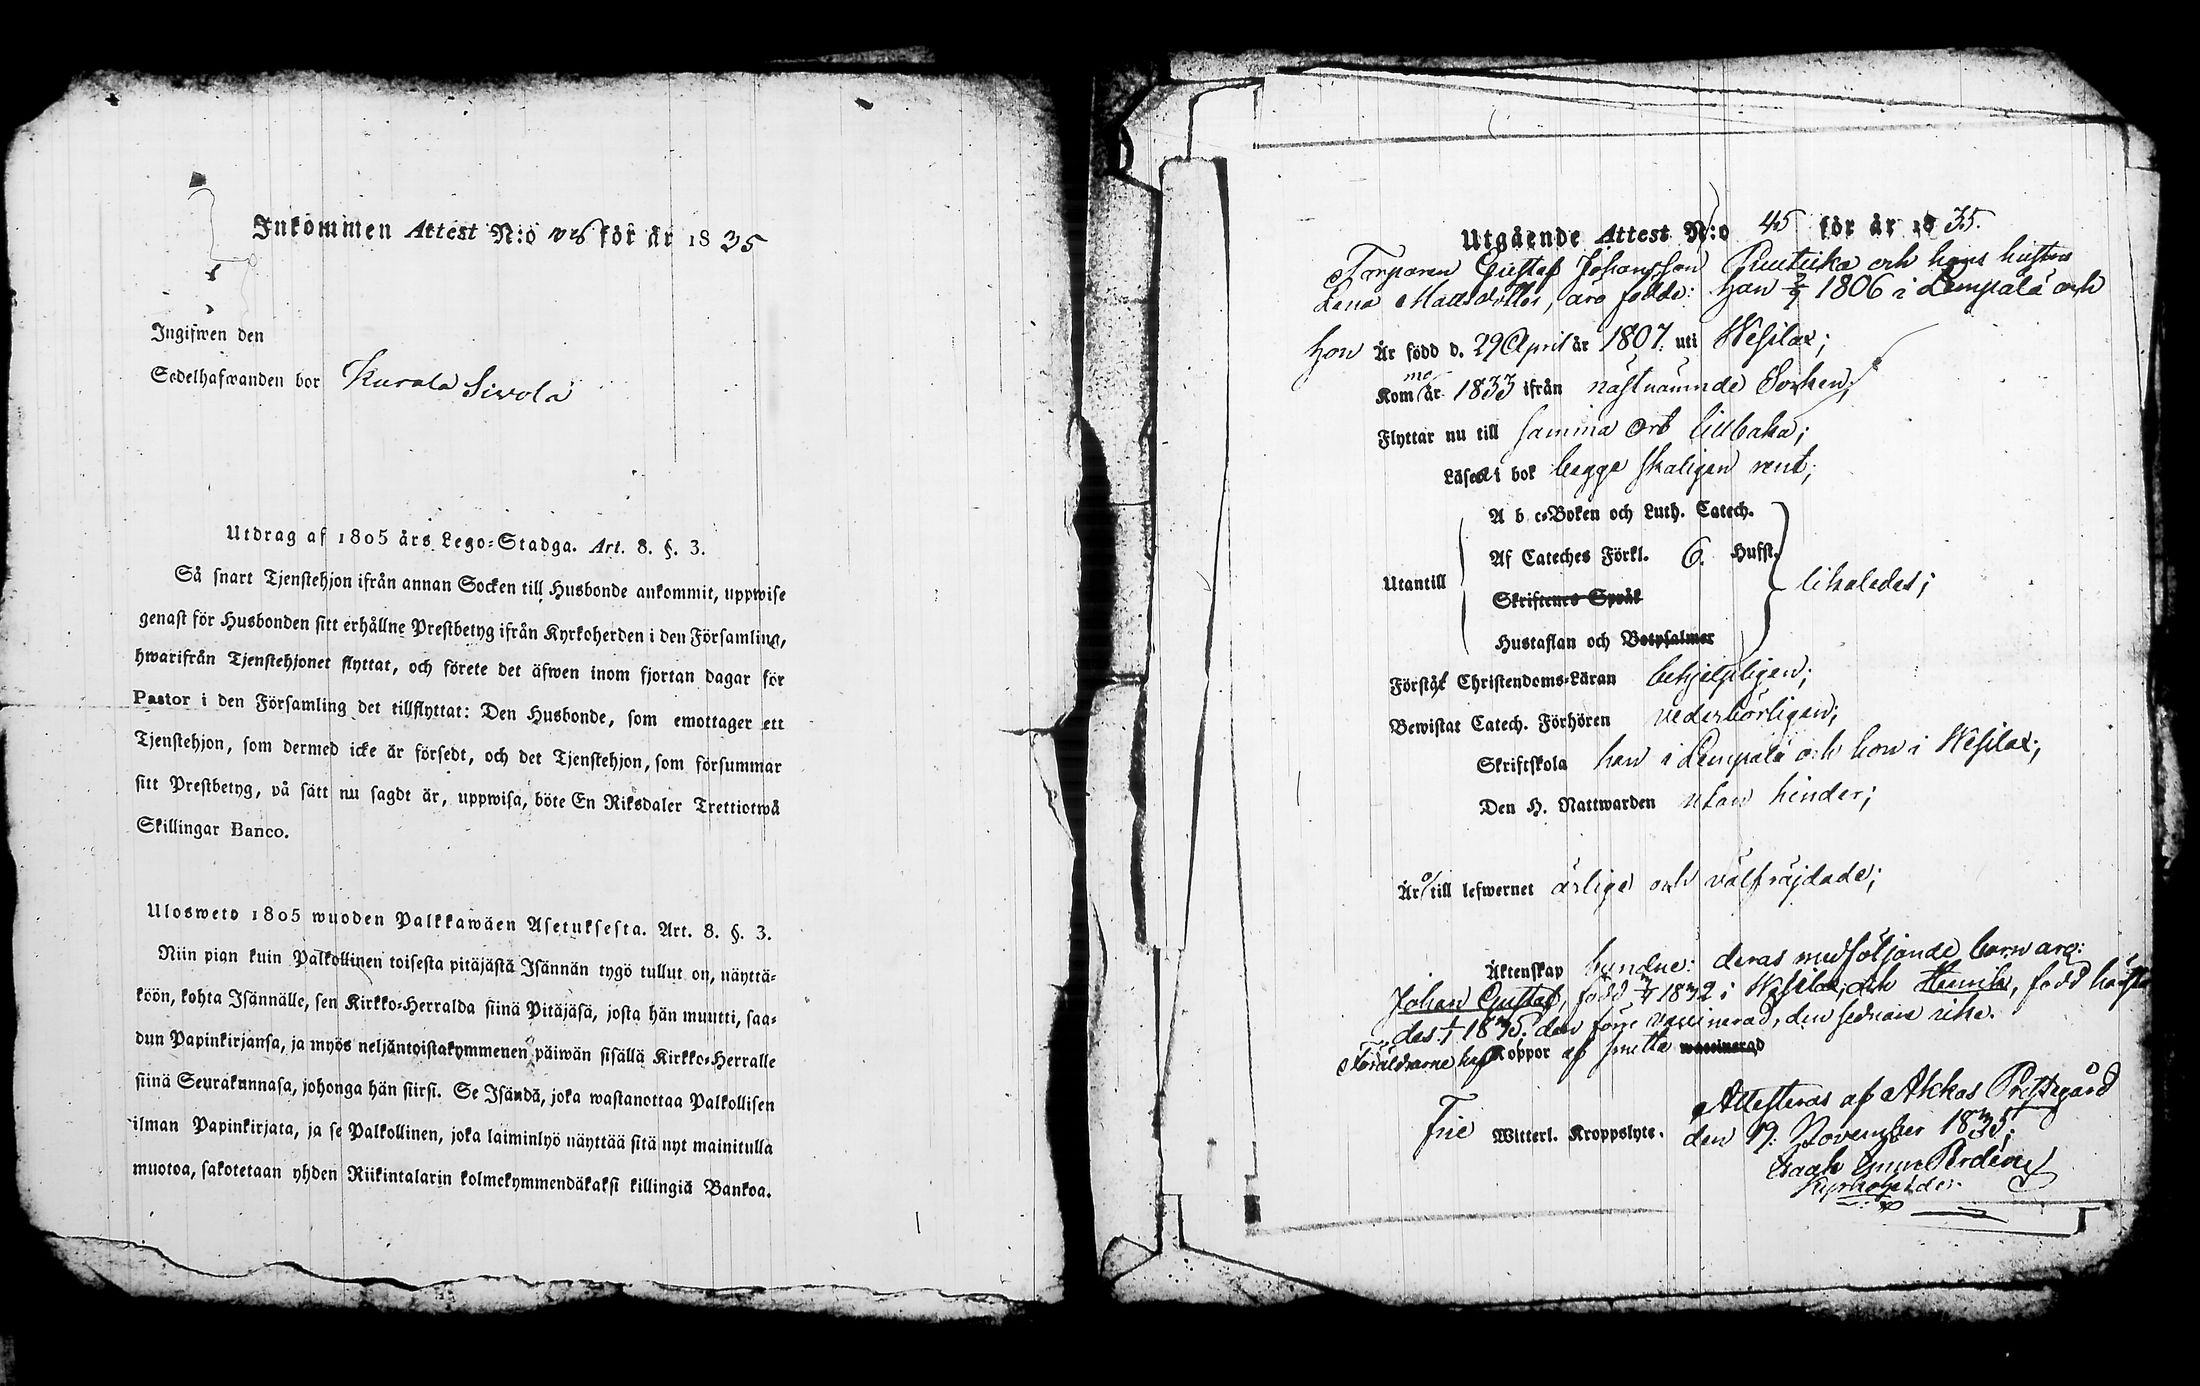 Inkommen Attest N:o för år 1835
Ingifwen den
Sedelhafwanden bor Kurala Sivola
Utdrag af 1805 års Lego-Stadga. Art. 8. §. 3.
Så snart Tjenstehjon ifrån annan Socken till Husbonde ankommit, uppwise
genast för Husbonden sitt erhållne Prestbetyg ifrån Kyrkoherden i den Församling,
hwarifrån Tjenstehjonet flyttat, och förete det äfwen inom fjortan dagar för
Pastor i den Församling det tillflyttat: Den Husbonde, som emottager ett
Tjenstehjon, som dermed icke är försedt, och det Tjenstehjon, som försummar
sitt Prestbetyg, på sätt nu sagdt är, uppwisa, böte En Riksdaler Trettiotwå
Skillingar Banco.
Ulosweto 1805 wuoden Palkkawäen Asetuksesta. Art. 8. §. 3.
Niin pian kuin Palkollinen toisesta pitäjästä Isännän tygö tullut on, näyttä-
köön, kohta Isännälle, sen Kirkko-Herralda siinä Pitäjäsä, josta hän muutti, saa-
dun Papinkirjansa, ja myös neljäntoistakymmenen päiwän sisällä Kirkko-Herralle
siinä Seurakunnasa, johonga hän siirsi. Se Isändä, joka wastanottaa Palkollisen
ilman Papinkirjata, ja se Palkollinen, joka laiminlyö näyttää sitä nyt mainitulla
muotoa, sakotetaan yhden Riikintalarin kolmekymmendäkaksi killingiä Bankoa.
Utgående Attest N:o 45 för år 1835.
Torparen Gustaf Johansson och hans hustru
Lena Matsdotter, äro födde: han 1806 i Lempälä och
hon Är född d. 29 April år 1807. uti Wesilax;
Kommo år 1833 ifrån nästnämnde Socken;
Flyttar nu till samma ort tillbaka;
Läser i bok begge skäligen rent;
A b c-Boken och Luth. Catech.
Af Cateches Förkl. 6. Hufst.
Utantill likaledes;
Skriftenes Språk
Hustaflan och Botpsalmer
Förstå Christendoms-Läran behjelpligen;
Bewistat Catech. Förhören vederbörligen;
Skriftskola han i Lempälä och hon i Wesilax;
Den H. Nattwarden utan hinder;
Äro till lefwernet ärlige och välfräjdade;
Äktenskap bundne: deras medföljande barn äro:
Johan Gustaf, född 1832 i Wesilax, och Henrik, född härstä
des 1835. den förre vaccinerad, den sednare icke.
Föräldrarne haft Koppor af smitta waccinerad
Frie Witterl. Kroppslyte. Attesteras af Akkas Prestegård
den 19. November 1835.
Kyrkoherde.